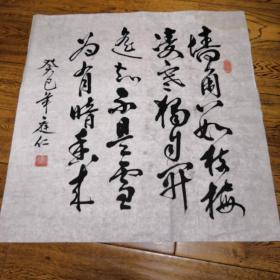 墙角数枝梅
凌寒独自开
遥知不是雪
为有暗香来
癸巳年庭仁